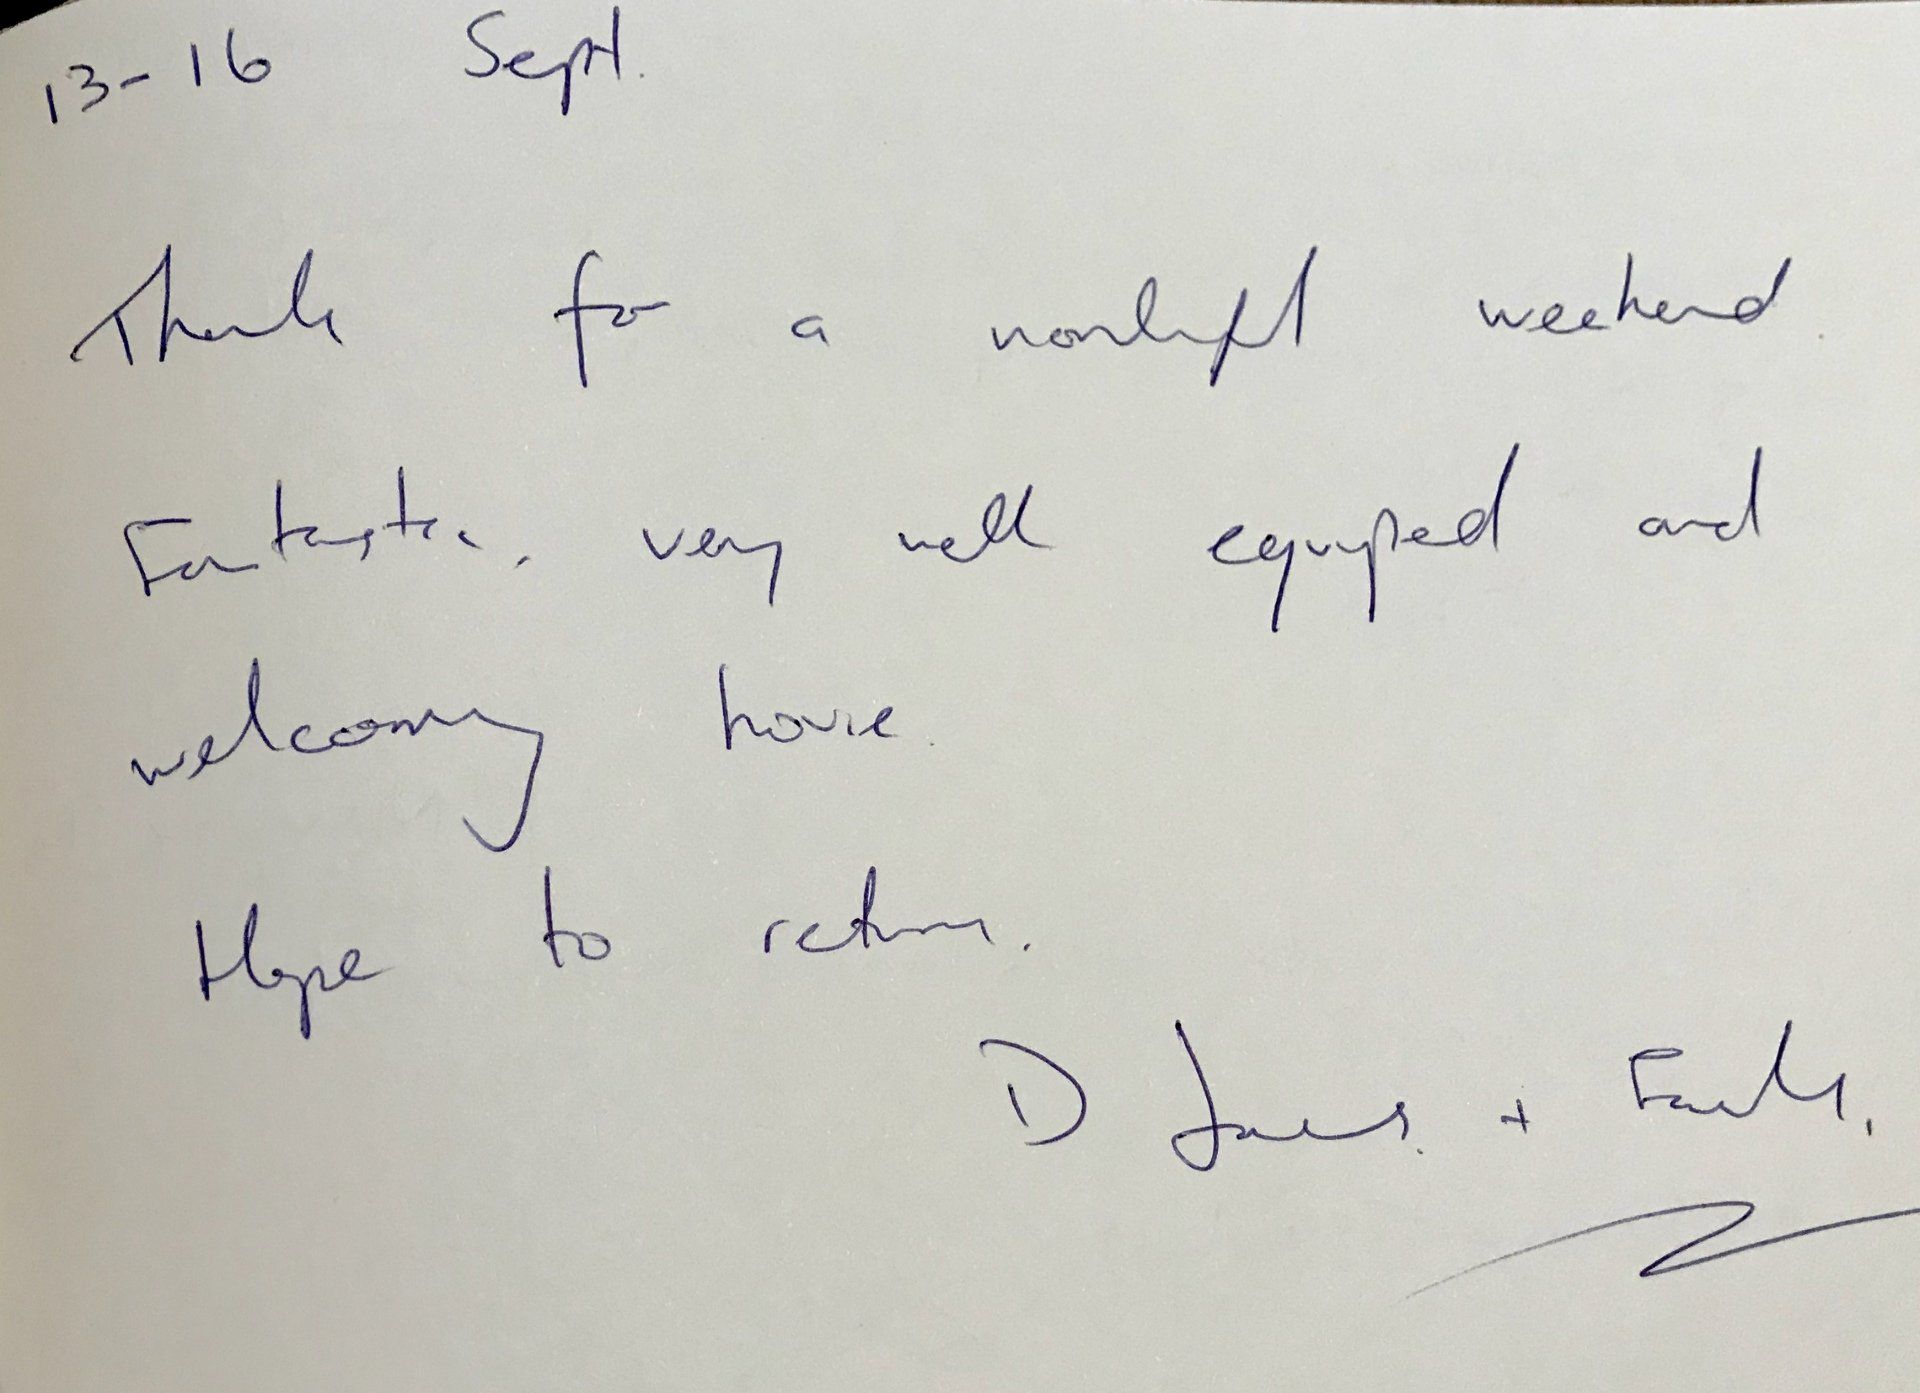 13-16 Sept.
Thanks for a wonderful weekend.
Fantastic, very well equipped and
welcoming house.
Hope to return.
D + Family.